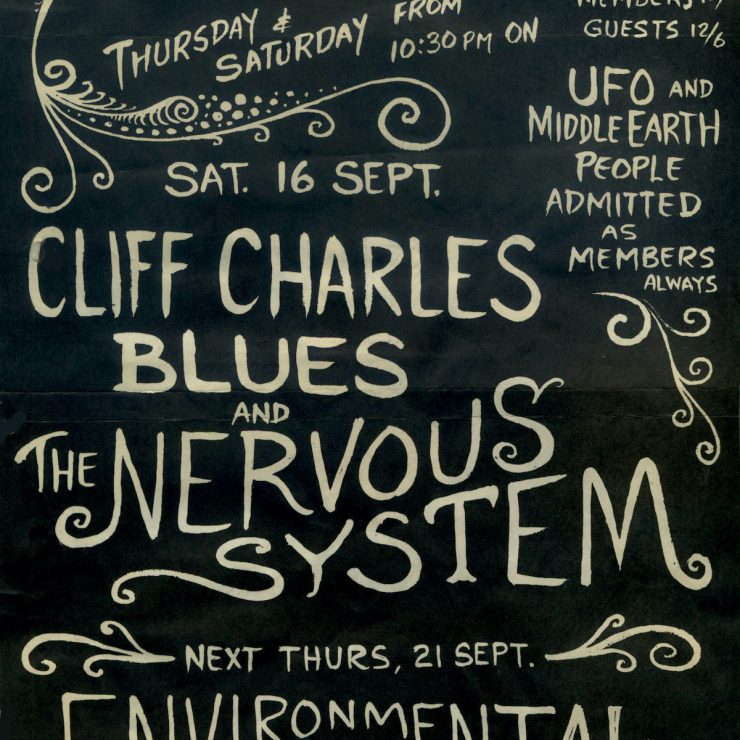 THURSDAY &
SATURDAY
FROM
10:30 PM ON
GUESTS 12/6
UFO AND
MIDDLE EARTH
PEOPLE
ADMITTED
AS
MEMBERS
ALWAYS
SAT. 16 SEPT.
CLIFF CHARLES
BLUES
AND
THE NERVOUS
SYSTEM
NEXT THURS, 21 SEPT.
ENVIRONMENTAL